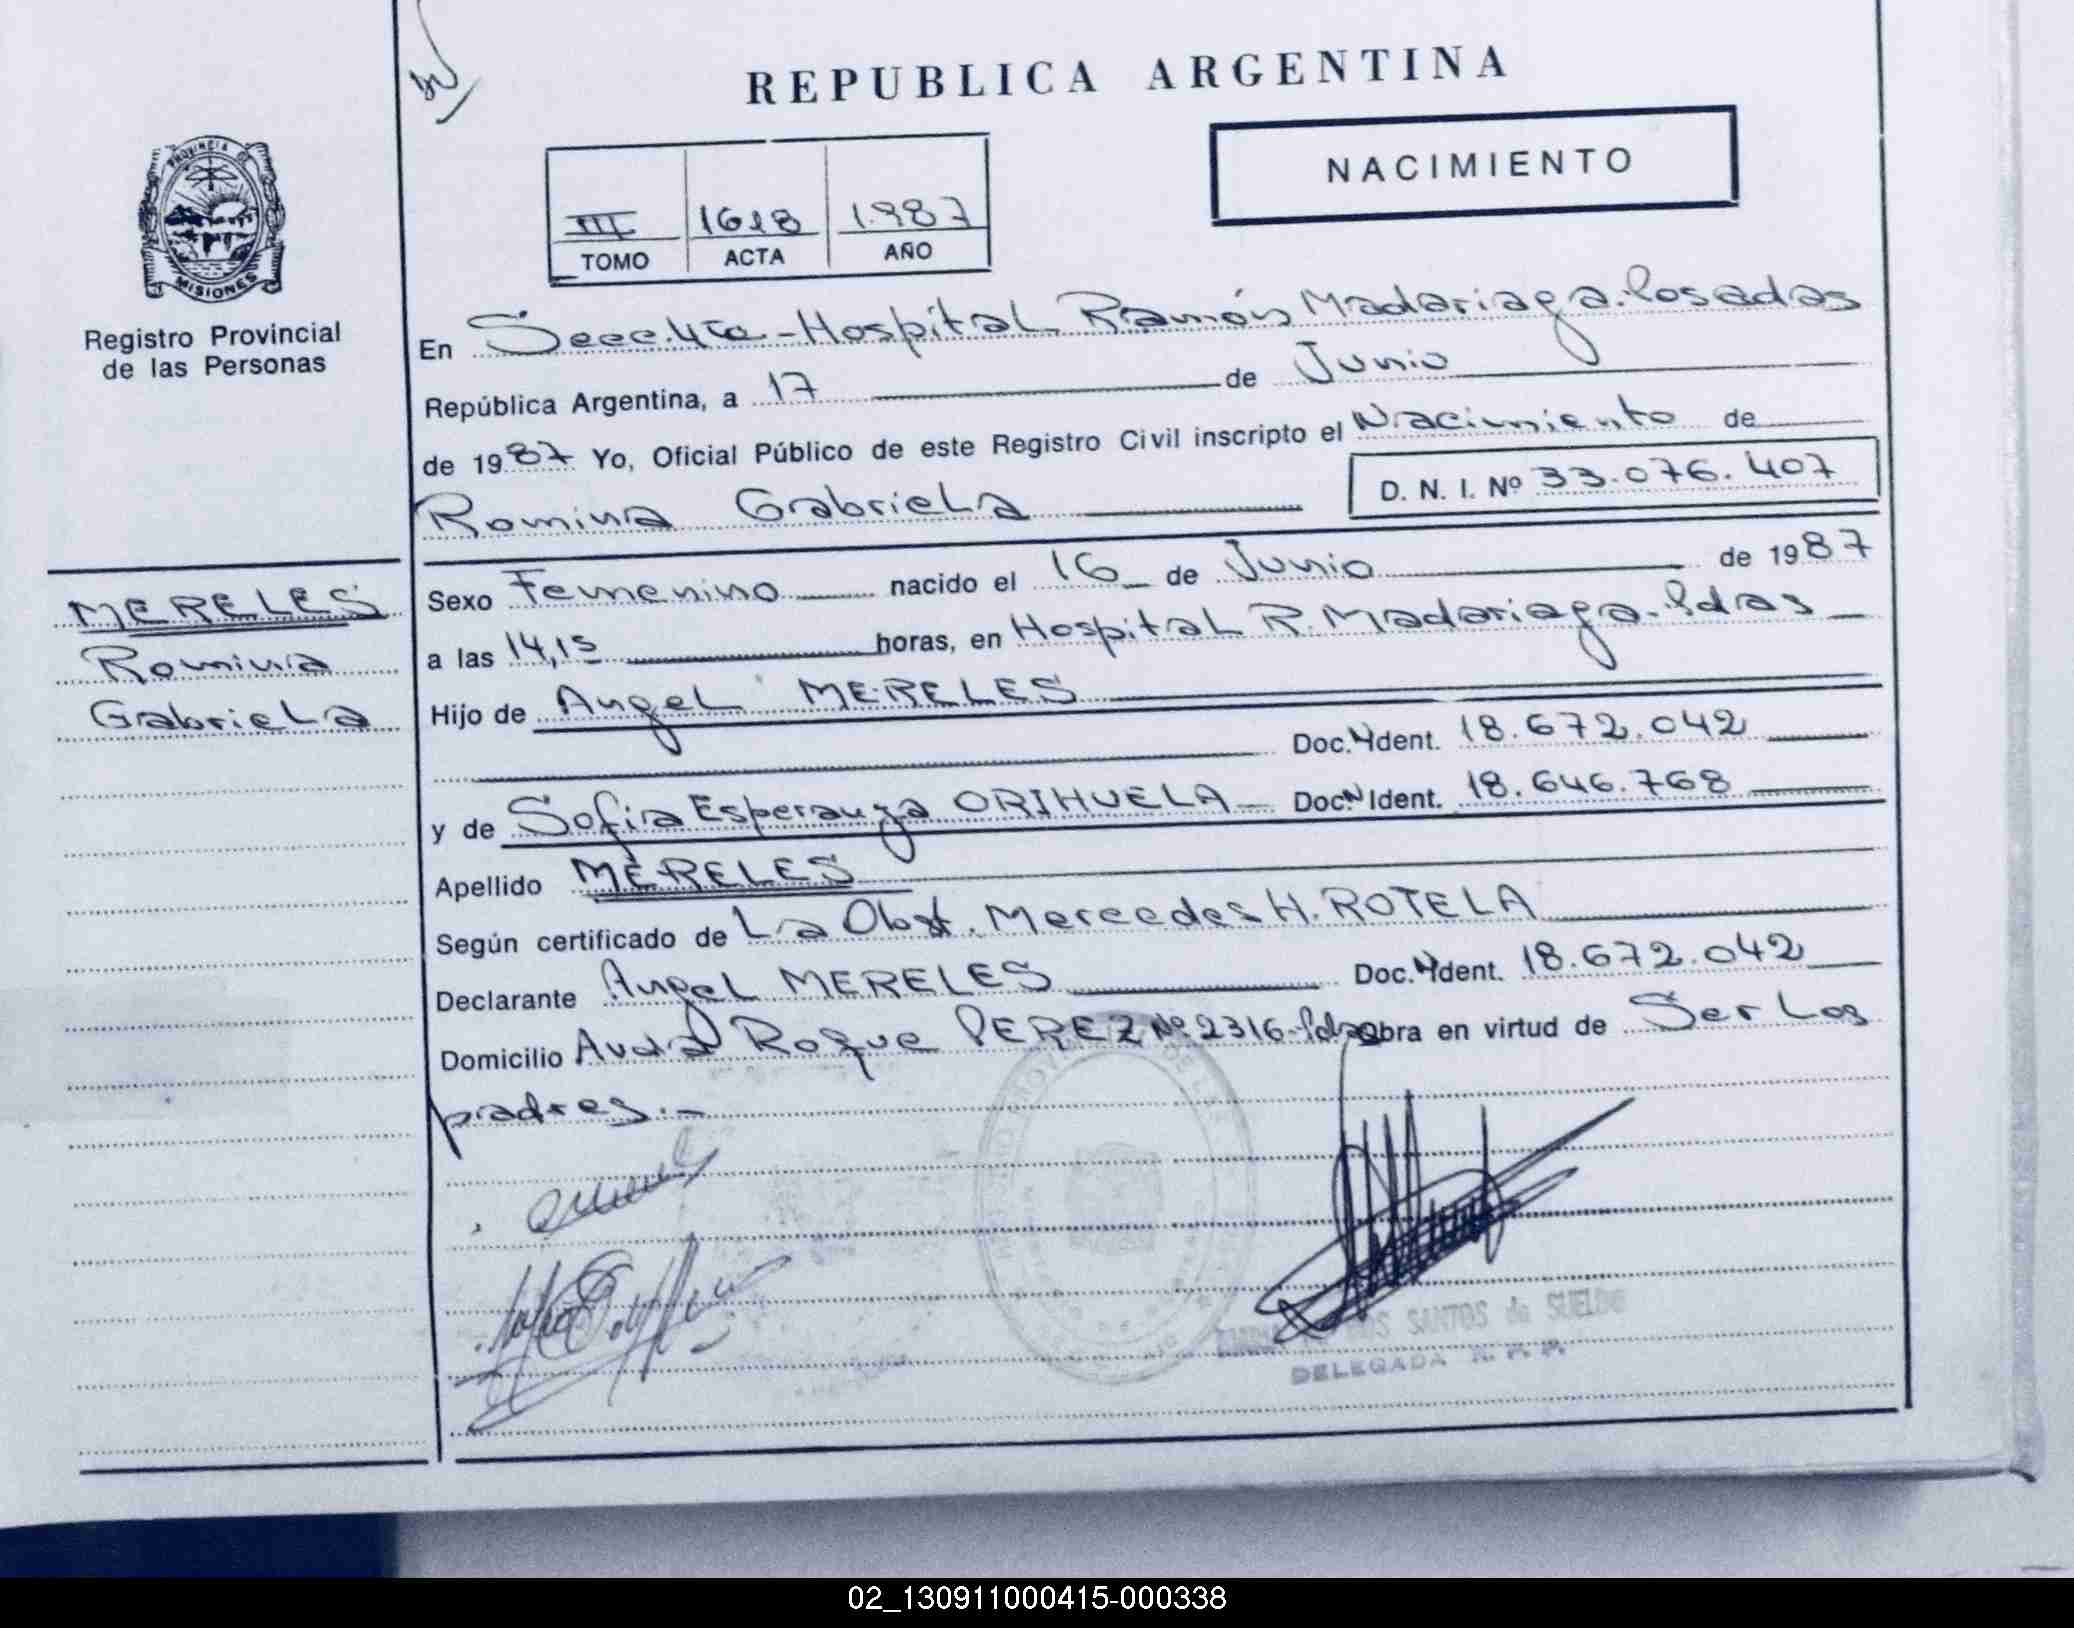 REPUBLICA ARGENTINA
NACIMIENTO
III 1618 1.987
TOMO ACTA AÑO
PROVINCIA DE
MISIONES
Registro Provincial
de las Personas
En Secc. 4ta - Hospital Ramón Madariaga. Posadas
República Argentina, a 17 de Junio
de 1987 Yo, Oficial Público de este Registro Civil inscripto el Nacimiento de
Romina Gabriela D. N. I. Nº 33.076.407
MERELES
Romina
Gabriela
Sexo Femenino nacido el 16 de Junio de 1987
a las 14,15 horas, en Hospital R. Madariaga. Pdas
Hijo de Angel MERELES
Doc. Ident. 18.672.042
y de Sofia Esperanza ORIHUELA Doc. Ident. 18.646.768
Apellido MERELES
Según certificado de La Obst. Mercedes H. ROTELA
Declarante Angel MERELES Doc. Ident. 18.672.042
Domicilio Avda Roque PEREZ Nº 2316-Pdas obra en virtud de Ser Los
padres.-
SANTOS de SUELDO
DELEGADA R. P. P.
02_130911000415-000338